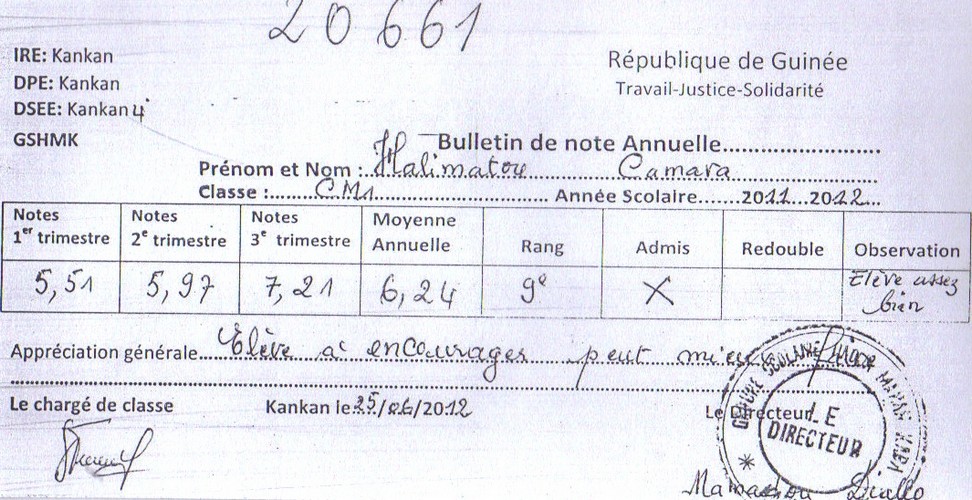 20661
IRE: Kankan
République de Guinée
DPE: Kankan
Travail-Justice-Solidarité
DSEE: Kankan 4
GSHMK
Bulletin de note Annuelle
Prénom et Nom : Halimatou Camara
Classe : CM1 Année Scolaire 2011 2012
Notes 1er trimestre Notes 2e trimestre Notes 3e trimestre Moyenne Annuelle Rang Admis Redouble Observation
5,51 5,97 7,21 6,24 9e X Elève assez bien
Appréciation générale Elève a encourages peut mieux faire
Le chargé de classe Kankan le 25/06/2012 Le Directeur
LE DIRECTEUR
Mamadou Diallo